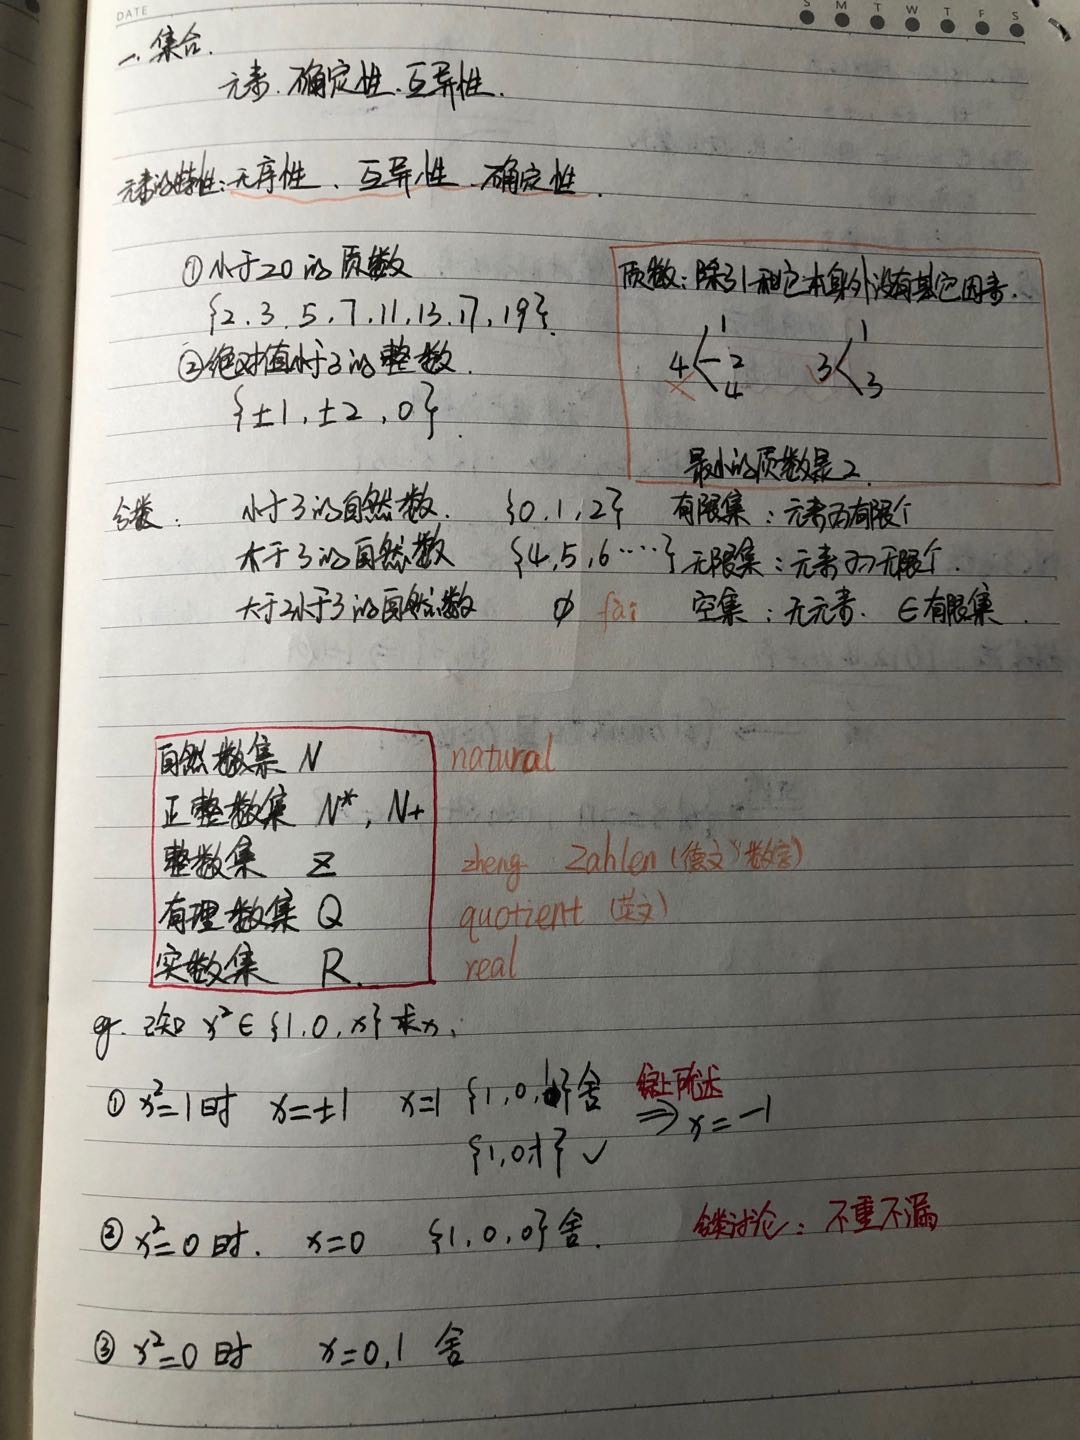 DATE
S M T W T F S
一. 集合.
元素. 确定性. 互异性.
元素的特性: 无序性 、 互异性 、 确定性 .
① 小于20的质数
{2. 3. 5. 7. 11. 13. 17. 19}.
② 绝对值小于3的整数.
{±1, ±2, 0}.
质数: 除了1和它本身外没有其它因素.
4 1 2 4 3 1 3
最小的质数是2.
分类: 小于3的自然数. {0, 1, 2} 有限集: 元素为有限个
大于3的自然数 {4, 5, 6 ····} 无限集: 元素为无限个.
大于2小于3的自然数 φ fài 空集: 无元素. ∈有限集.
自然数集 N natural
正整数集 N*, N+
整数集 Z zheng Zahlen (德文"数字)
有理数集 Q quotient (英文)
实数集 R. real
eg. 已知 x²∈{1, 0, x} 求x.
① x²=1时 x=±1 x=1 {1, 0, 1}舍 综上所述
⇒ x=-1
{1, 0,-1} ✓
② x²=0时. x=0 {1, 0, 0}舍. 分类讨论: 不重不漏
③ x²=0时 x=0,1 舍